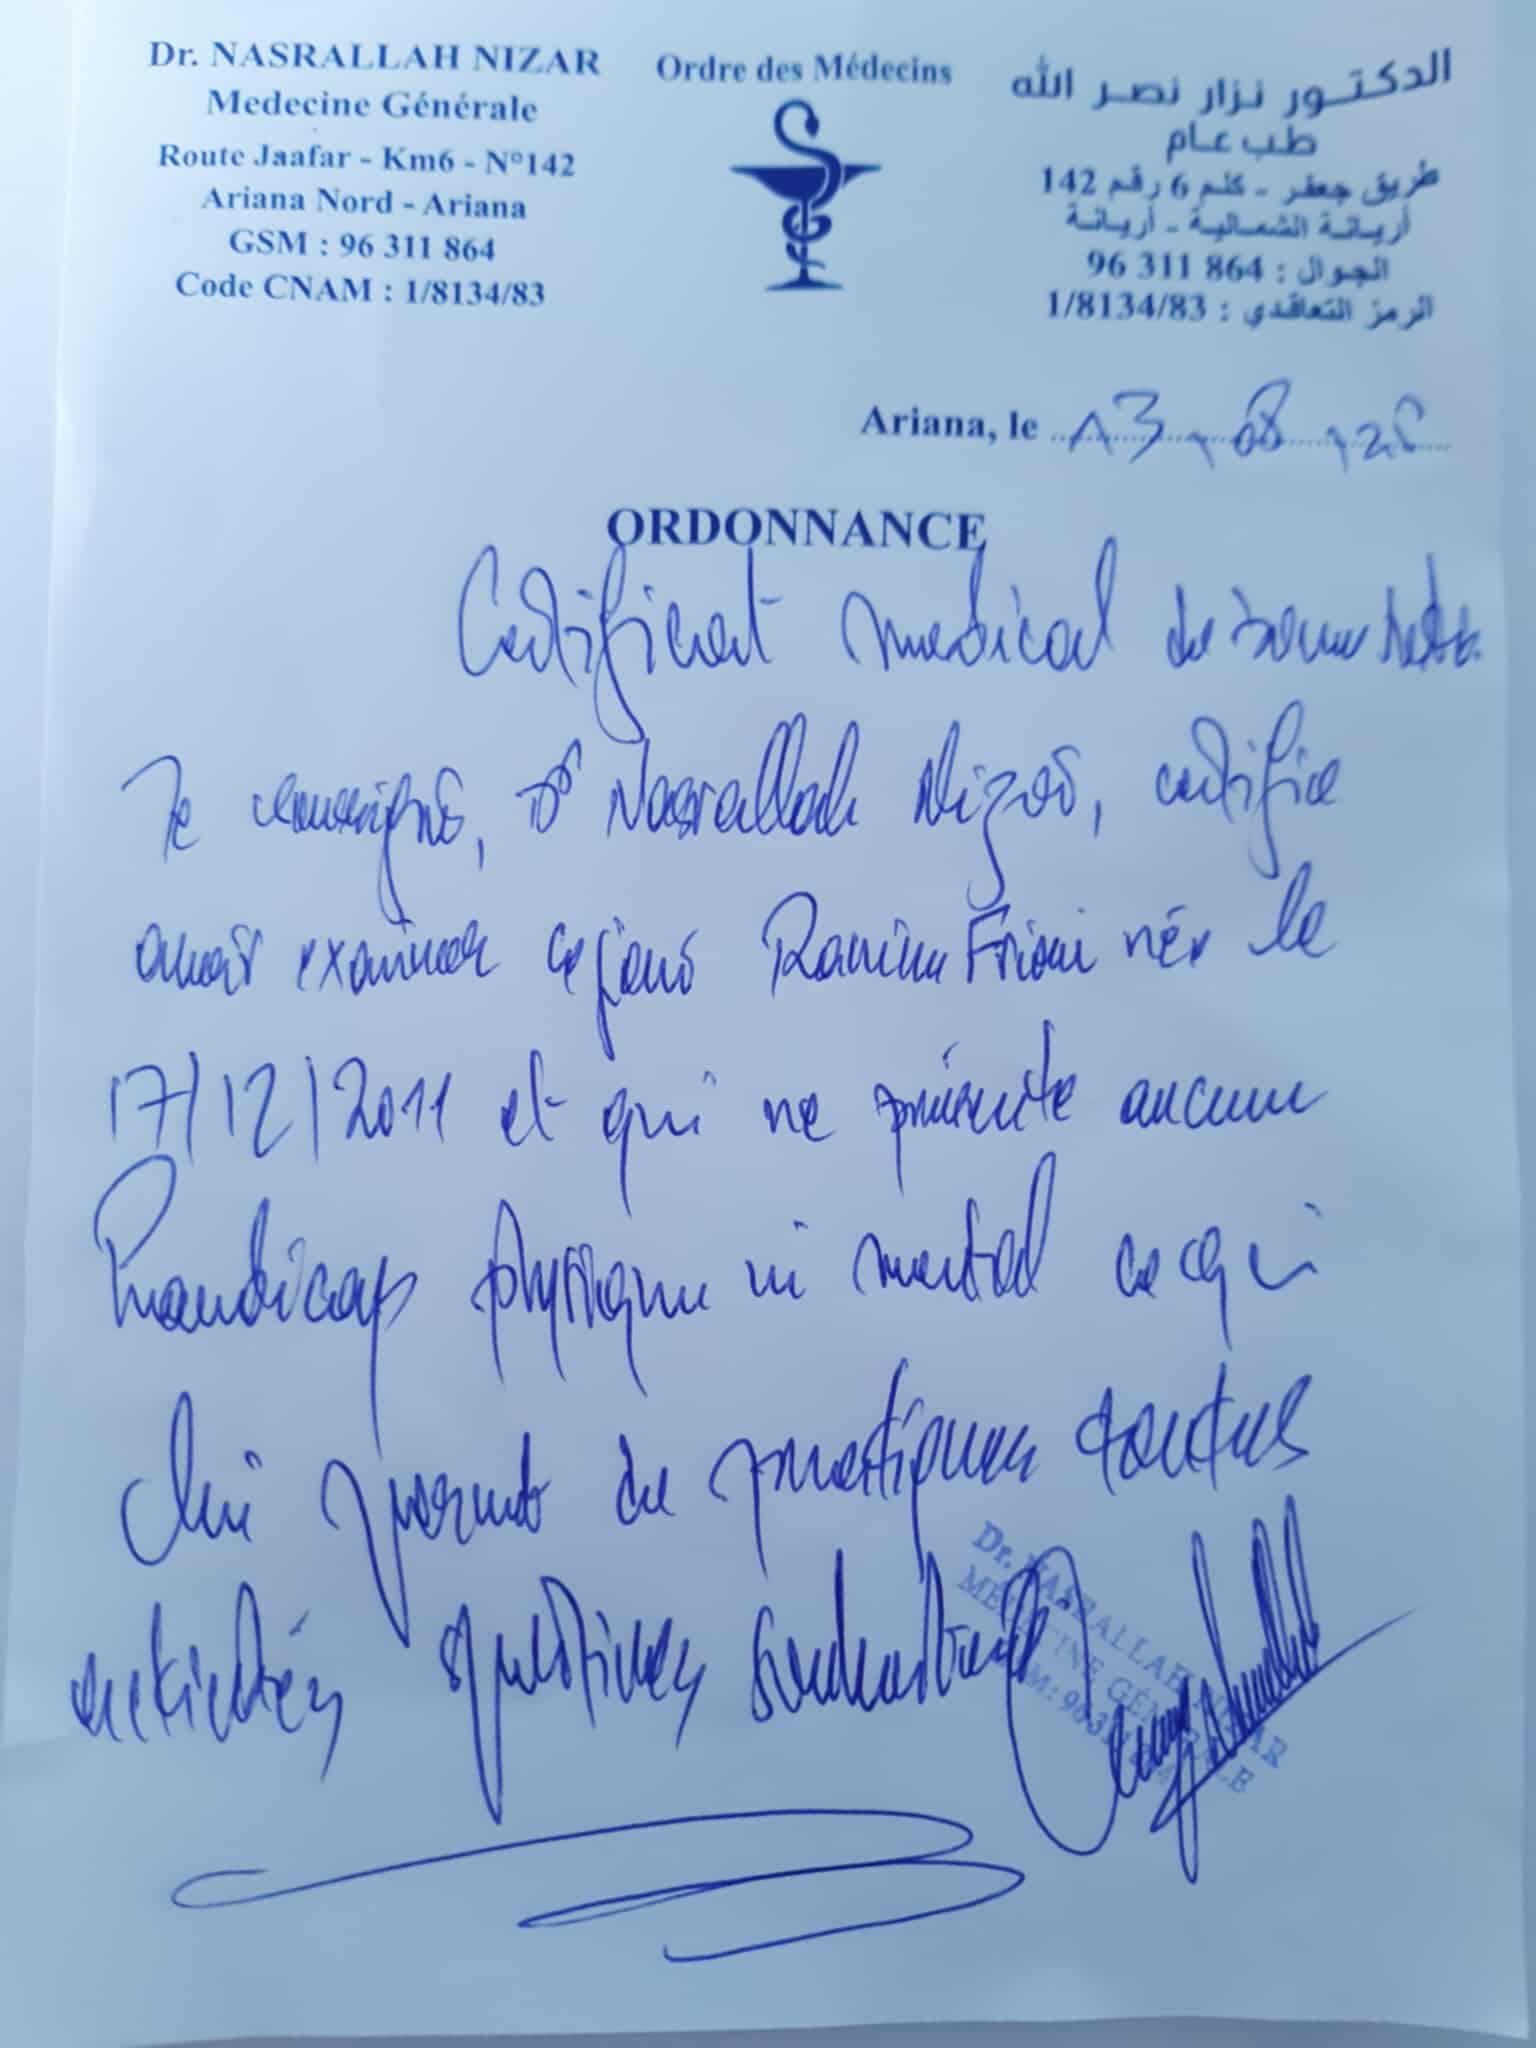 Dr. NASRALLAH NIZAR
Medecine Générale
Route Jaafar - Km6 - N°142
Ariana Nord - Ariana
GSM : 96 311 864
Code CNAM : 1/8134/83
Ordre des Médecins
الدكتور نزار نصر الله
طب عام
طريق جعفر - كلم 6 رقم 142
أريانة الشمالية - أريانة
الجوال : 96 311 864
الرمز التعاقدي : 1/8134/83
Ariana, le 13 08
ORDONNANCE
Certificat medical de bonne
Je soussigné, Dr Nasrallah Nizar, certifie
avoir examiner ce jour Ranim née le
17/12/2011 et qui ne présente aucun
handicap physique ni mental ce qui
lui permet de pratiquer toutes
activités sportives
Dr. NASRALLAH NIZAR
MEDECINE GÉNÉRALE